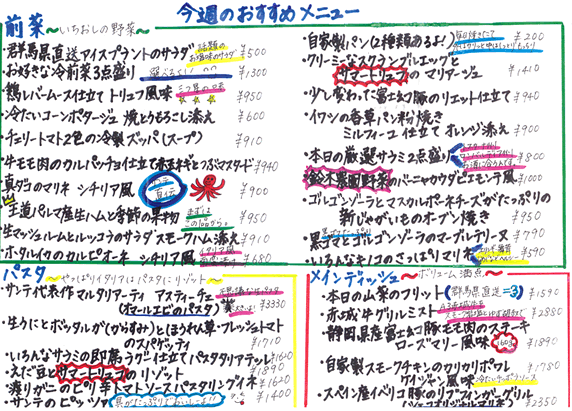 今週のおすすめメニュー
前菜 〜いちおしの野菜〜
・群馬県直送アイスプラントのサラダ 話題のお塩味のサラダ ¥500
・お好きな冷前菜3点盛り ¥1300
・鶏レバームース仕立て トリュフ風味 ¥950
・冷たいコーンポタージュ 焼とうもろこし添え ¥600
・チェリートマト2色の冷製ズッパ(スープ) ¥910
・牛モモ肉のカルパッチョ仕立て赤玉ネギとつぶマスタード ¥940
・真ダコのマリネ シチリア風 ¥900
・王道パルマ産生ハムと季節の果物 まずはこの1品から ¥950
・生マッシュルームとルッコラのサラダ スモークハム添え ¥910
・ホタルイカのカルピオーネ シチリア風 ¥680
・自家製パン(2種類あるよ!) ¥200
・クリーミーなスクランブルエッグと
サマートリュフのマリアージュ ¥1410
・少し変わった富士幻豚のリエット仕立て ¥940
・イワシの香草パン粉焼き
ミルフィーユ仕立て オレンジ添え ¥900
・本日の厳選サラミ2点盛り ¥800
・鈴木農園野菜のバーニャカウダピエモンテ風 ¥1000
・ゴルゴンゾーラとマスカルポーネチーズがたっぷりの
新じゃがいものオーブン焼き ¥950
・黒ゴマとゴルゴンゾーラのマーブルテリーヌ ¥790
・いろんなキノコのさっぱりマリネ ¥590
パスタ 〜やっぱりイタリアはパスタにリゾット〜
・サンテ代表作 マルタリアーティ アスティーチェ
(オマールエビのパスタ) ¥3330
・生うにとボッタルガ(からすみ)とほうれん草・フレッシュトマト
のスパゲッティ ¥1710
・いろんなサラミの即席ラグー仕立て パスタタリアテッレ ¥1620
・えだ豆とサマートリュフのリゾット ¥1890
・渡りガニのピリ辛トマトソースパスタリングイネ ¥1620
・サンテのピッツァ ¥1400
メインディッシュ 〜ボリューム満点〜
・本日の山菜のフリット(群馬県直送) ¥1590
・赤城牛グリルミスト ¥2880
・静岡県産富士幻豚モモ肉のステーキ
ローズマリー風味 160g ¥1890
・自家製スモークチキンのカリカリポワレ
ケイジャン風味 ¥1780
・スペイン産イベリコ豚 ¥2350